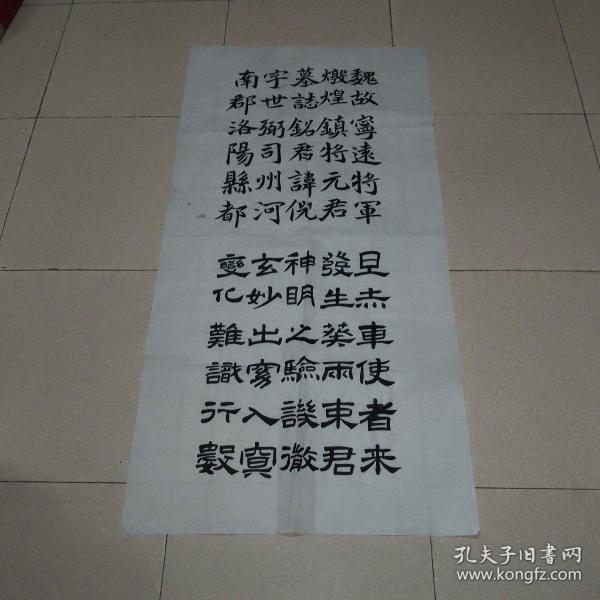 魏故寧遠將軍
燉煌鎮將元君
墓誌銘君諱倪
字世弼司州河
南郡洛陽縣都
旦赤車使者来
發生葵兩束君
神明之驗譏徹
玄妙出窈入冥
變化難識行數
孔夫子旧书网
www.kongfz.com